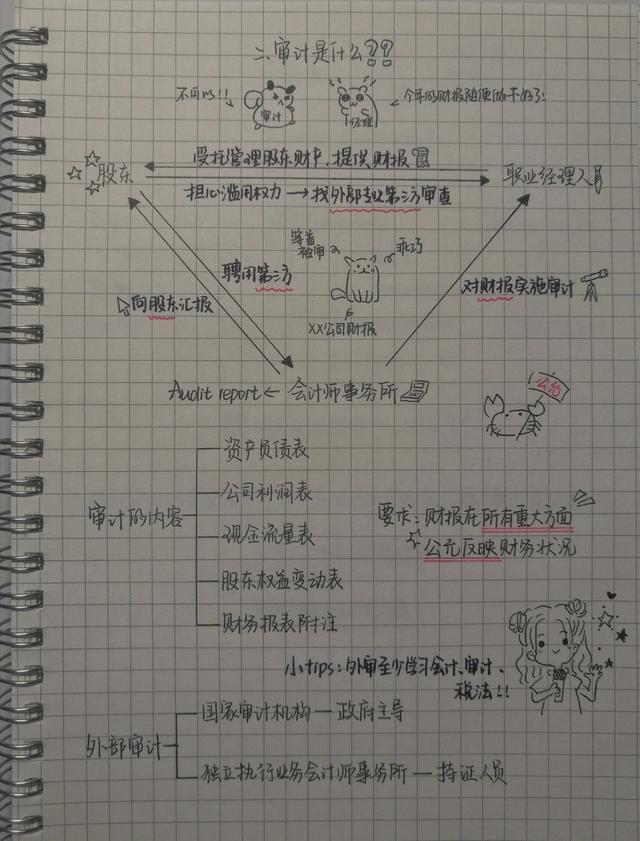 二、审计是什么??
不可以!!
审计
经理
今年的财报随便做下好了!
受托管理股东财产,提供财报
股东
职业经理人
担心滥用权力→找外部专业第三方审查
等着被审
乖巧
聘用第三方
向股东汇报
对财报实施审计
XX公司财报
Audit report ← 会计师事务所
公允
资产负债表
公司利润表
审计的内容
现金流量表
股东权益变动表
财务报表附注
要求:财报在所有重大方面
公允反映财务状况
小tips:外审至少学习会计、审计、
税法!!
国家审计机构—政府主导
外部审计
独立执行业务会计师事务所—持证人员